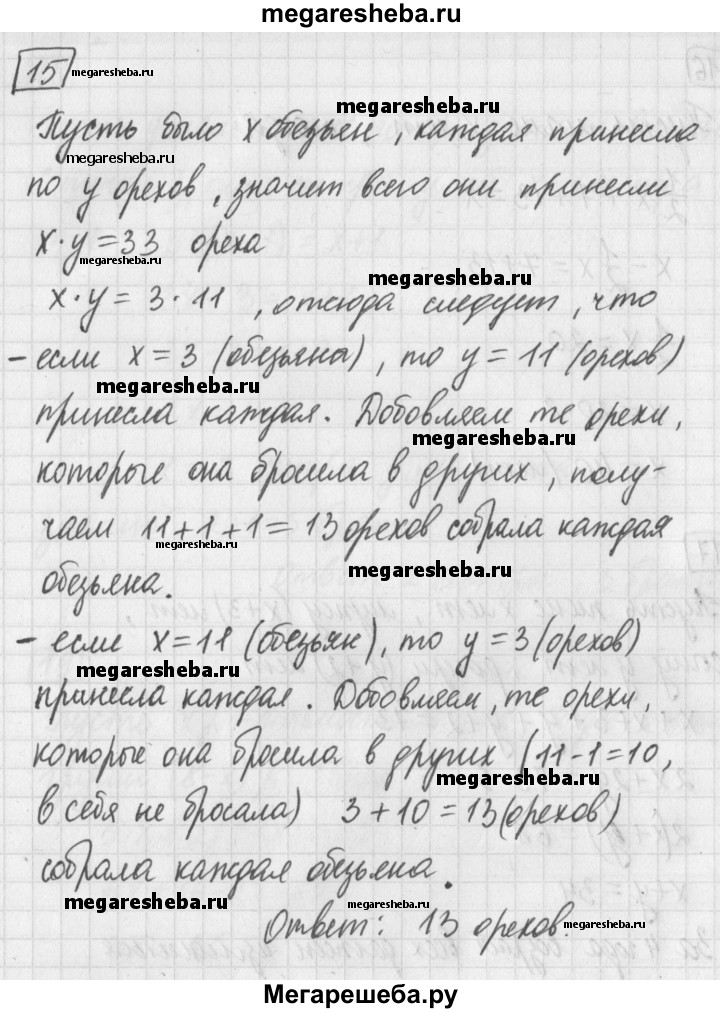 megaresheba.ru
15 megaresheba.ru
megaresheba.ru
Пусть было х обезьян, каждая принесла
megaresheba.ru
по у орехов, значит всего они принесли
х·у=33 ореха
megaresheba.ru
megaresheba.ru
х·у = 3·11, отсюда следует, что
- если х=3 (обезьяны), то у = 11 (орехов)
megaresheba.ru
принесла каждая. Добовляем те орехи,
megaresheba.ru
которые она бросила в других, полу-
чаем 11+1+1=13 орехов собрала каждая
megaresheba.ru
обезьяна.
- если х=11 (обезьян), то у=3(орехов)
megaresheba.ru
принесла каждая. Добовляем, те орехи,
которые она бросила в других (11-1=10,
megaresheba.ru
в себя не бросала) 3+10=13(орехов)
собрала каждая обезьяна.
megaresheba.ru
Ответ: 13 орехов.
megaresheba.ru
megaresheba.ru
Мегарешеба.ру